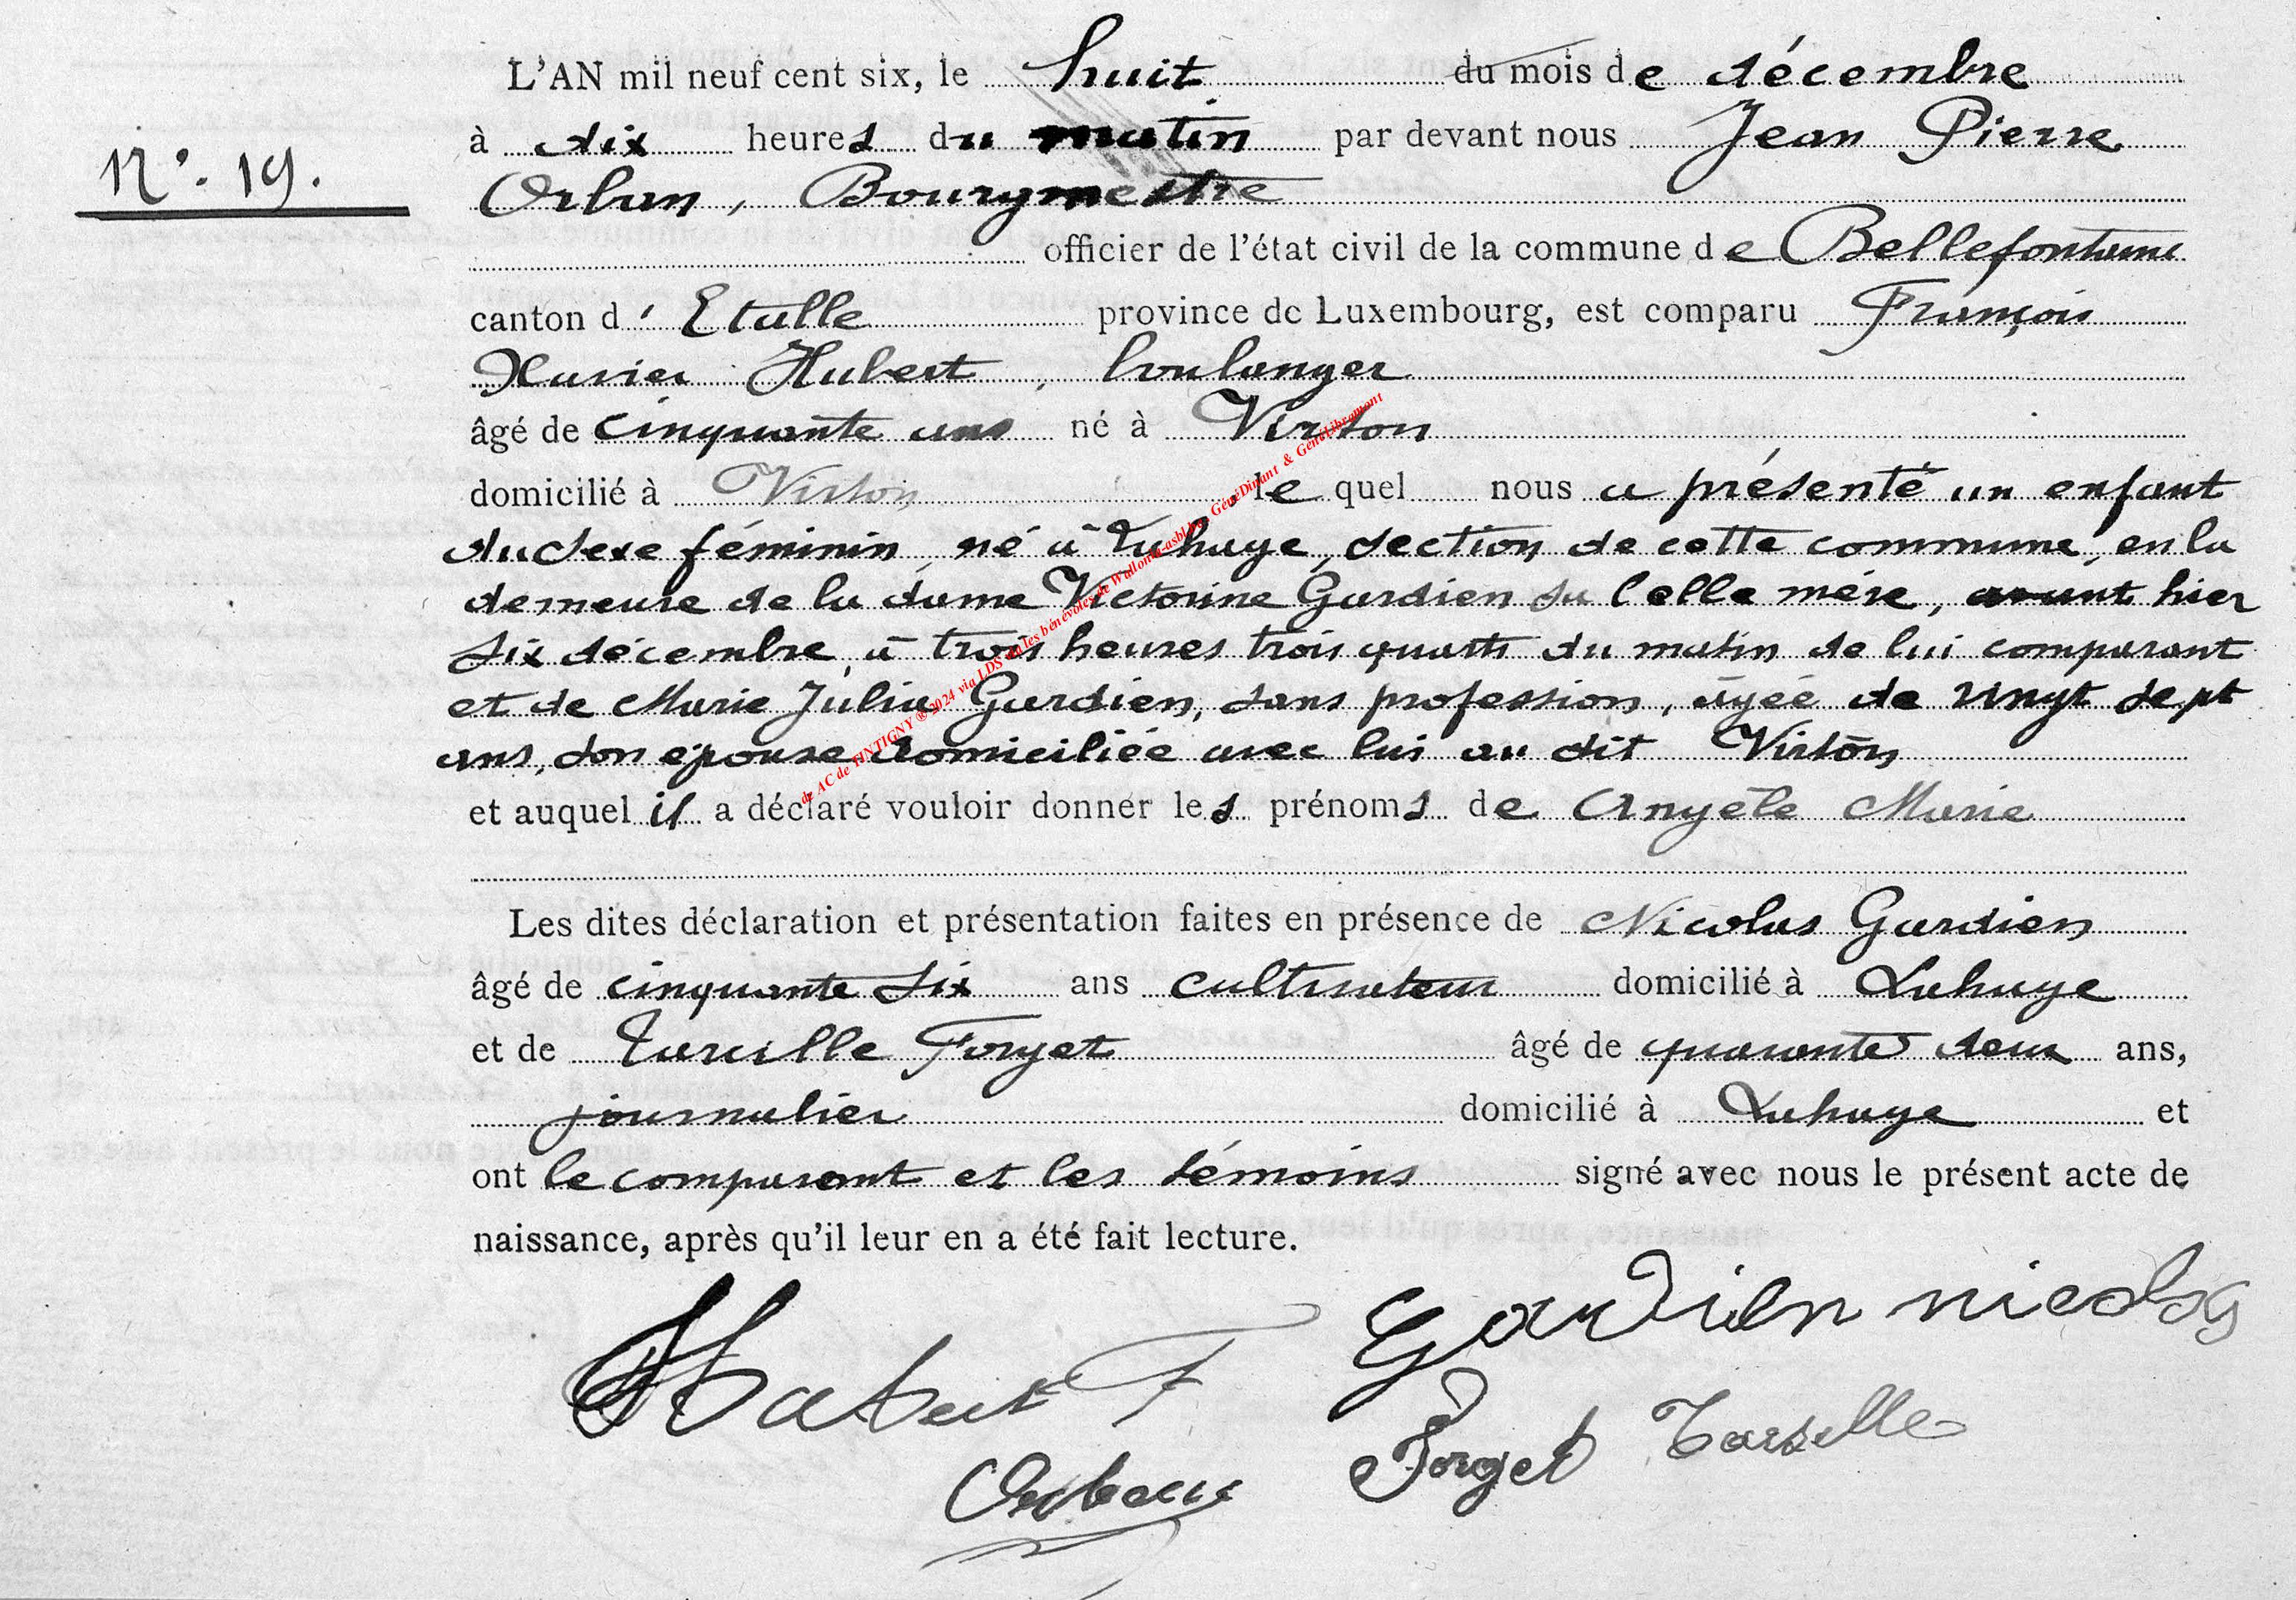 L'AN mil neuf cent six, le huit du mois de décembre
N°. 19.
à dix heures du matin par devant nous Jean Pierre
Orban, Bourgmestre
officier de l'état civil de la commune de Bellefontaine
canton d'Etalle province de Luxembourg, est comparu François
Xavier Hubert, boulanger
âgé de cinquante ans né à Virton
domicilié à Virton, lequel nous a présenté un enfant
du sexe féminin, né à Lahage, section de cette commune, en la
demeure de la dame Victorine Gardien sa belle mère, avant hier
six décembre, à trois heures trois quarts du matin de lui comparant
et de Marie Julia Gardien, sans profession, âgée de vingt sept
ans, son épouse domiciliée avec lui au dit Virton
et auquel il a déclaré vouloir donner les prénoms de Angèle Marie
Les dites déclaration et présentation faites en présence de Nicolas Gardien
âgé de cinquante six ans cultivateur domicilié à Lahage
et de Tarcille Forget âgé de quarante deux ans,
journalier domicilié à Lahage et
ont le comparant et les témoins signé avec nous le présent acte de
naissance, après qu'il leur en a été fait lecture.
Gardien nicolas
Hubert F
Forget Tarsille
Orban
dr AC de TINTIGNY ® 2024 via LDS les bénévoles de Wallonia-asbl GénéDinant & GénéLibramont